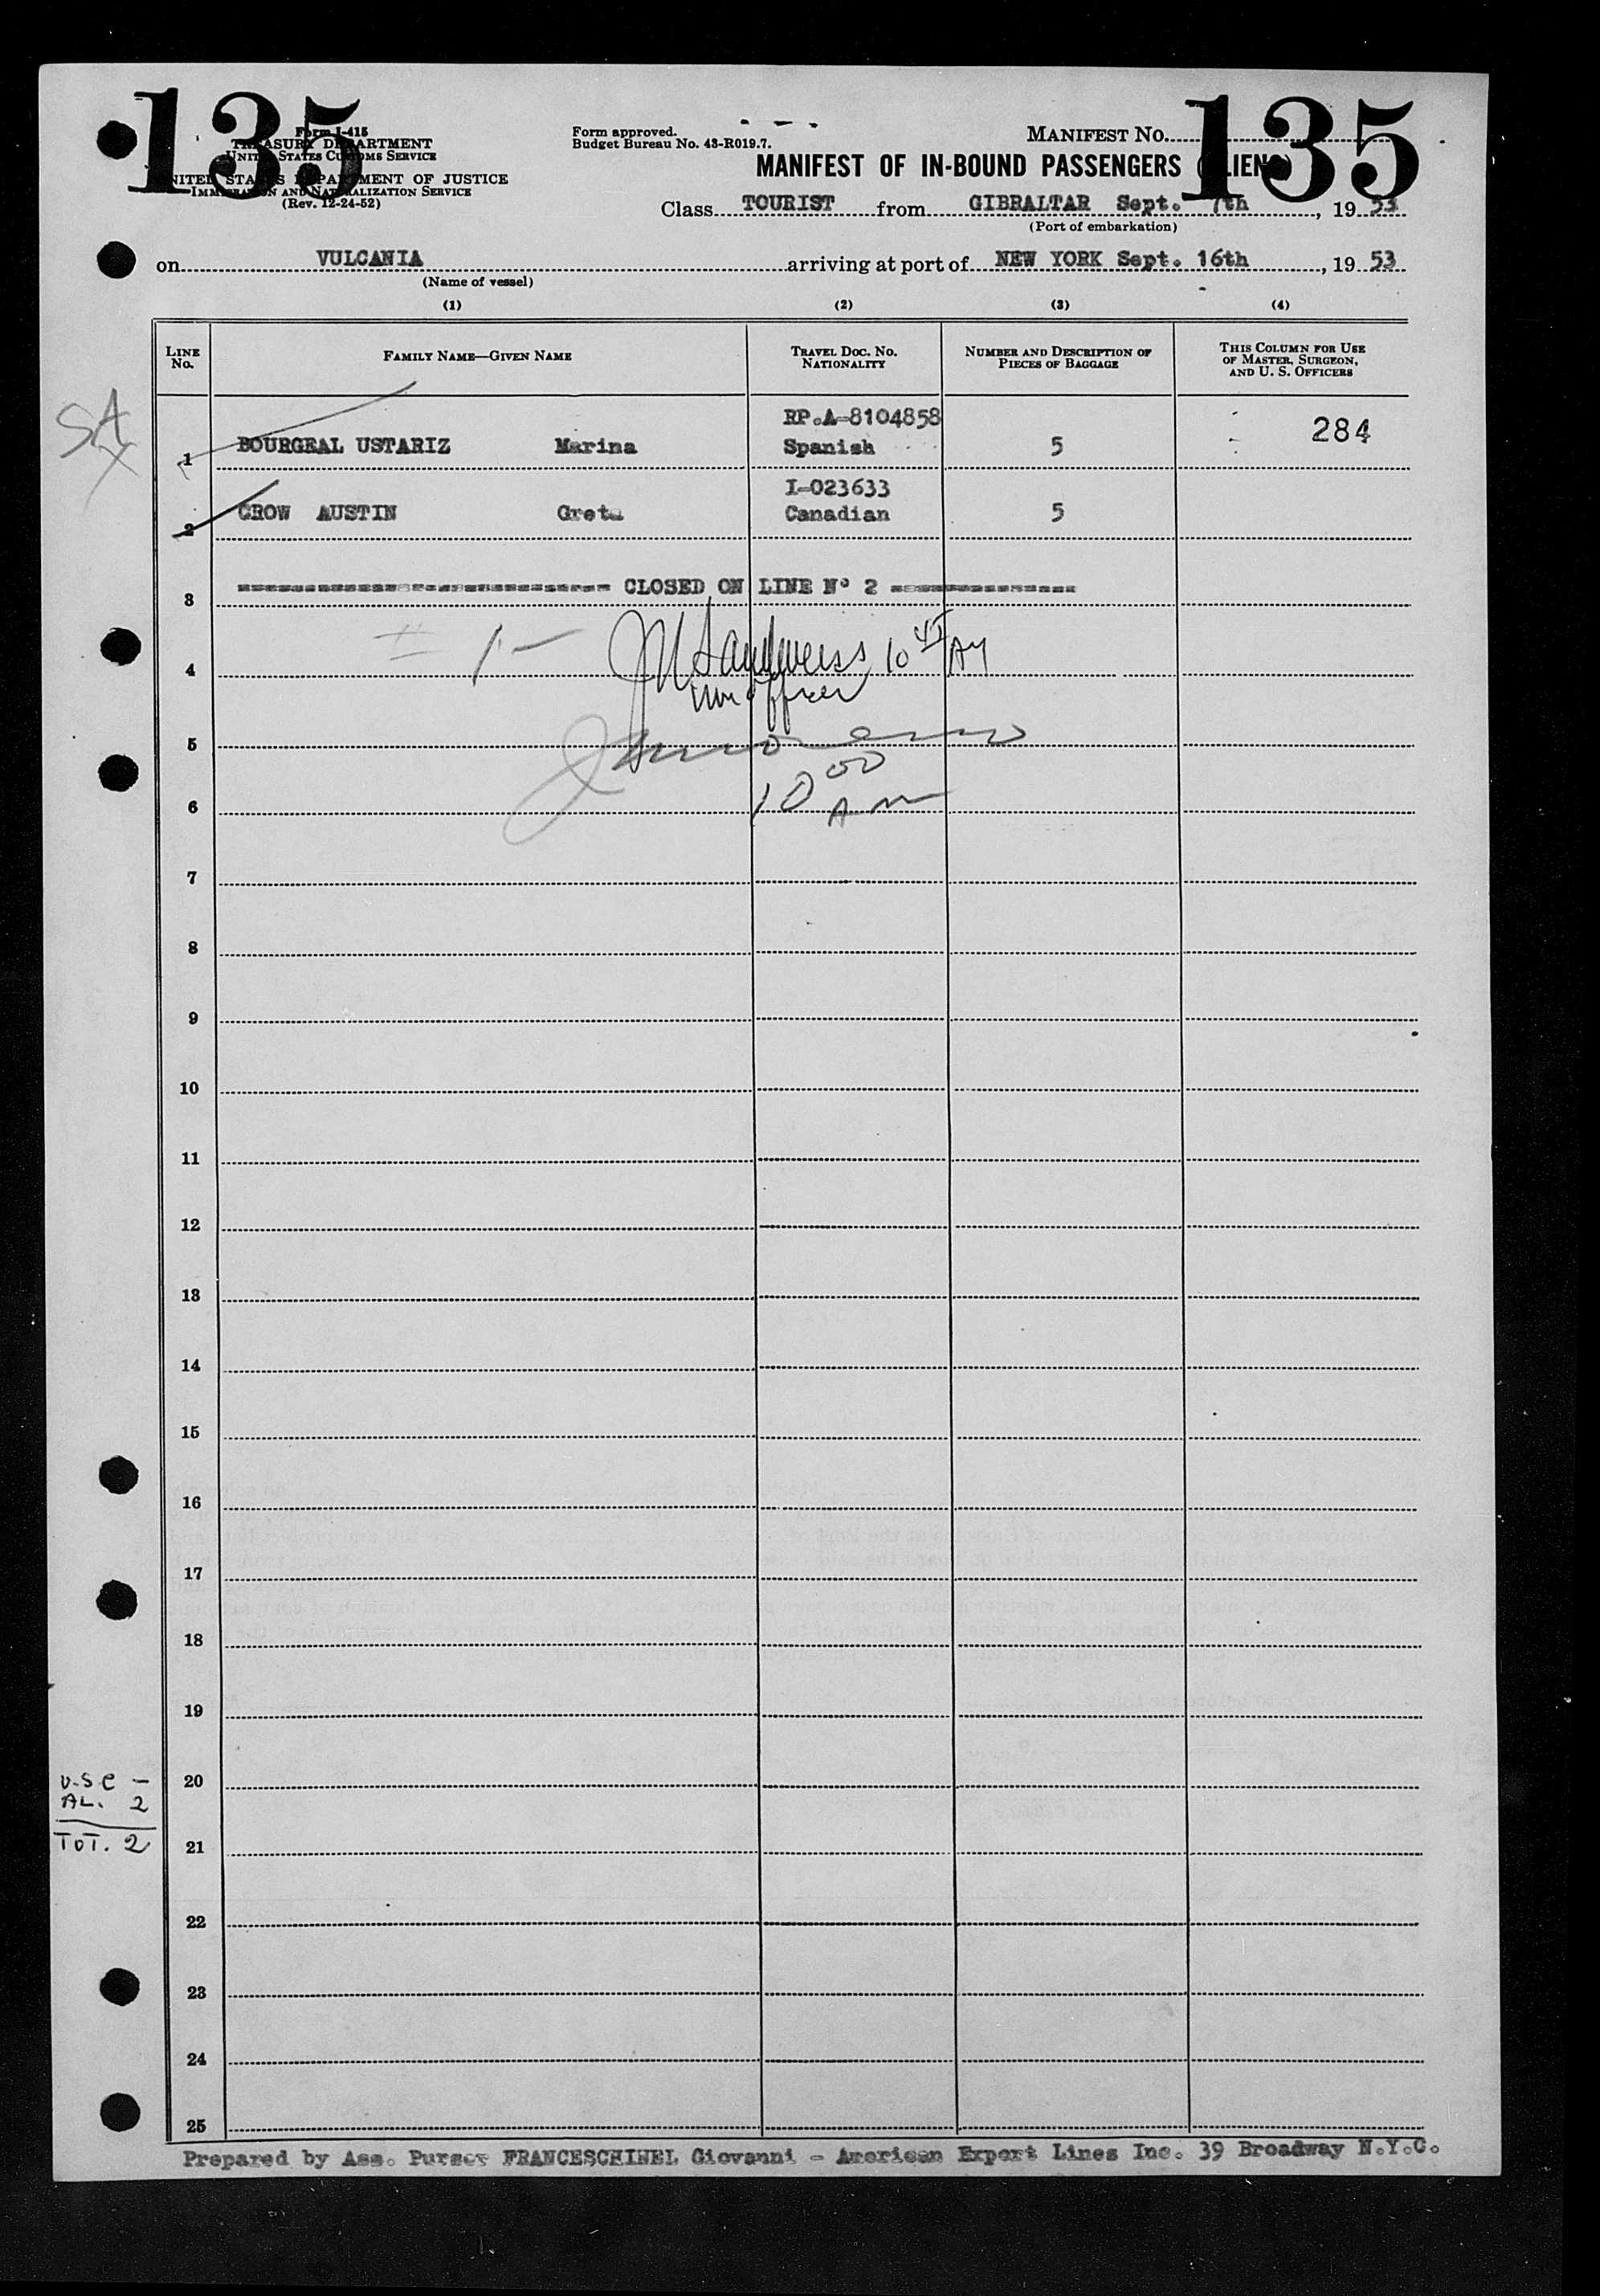 135 135
Form I-415
TREASURY DEPARTMENT
UNITED STATES CUSTOMS SERVICE
UNITED STATES DEPARTMENT OF JUSTICE
IMMIGRATION AND NATURALIZATION SERVICE
(Rev. 12-24-52)
Form approved.
Budget Bureau No. 43-R019.7.
MANIFEST No.
MANIFEST OF IN-BOUND PASSENGERS (ALIENS)
Class TOURIST from GIBRALTAR Sept. 7th, 19 53
(Port of embarkation)
on VULCANIA arriving at port of NEW YORK Sept. 16th, 19 53
(Name of vessel)
(1) (2) (3) (4)
LINE No. FAMILY NAME—GIVEN NAME TRAVEL DOC. NO. NATIONALITY NUMBER AND DESCRIPTION OF PIECES OF BAGGAGE THIS COLUMN FOR USE OF MASTER, SURGEON, AND U. S. OFFICERS
SA
RP.A-8104858 284
1 BOURGEAL USTARIZ Marina Spanish 5
I-023633
2 CROW AUSTIN Greta Canadian 5
3 CLOSED ON LINE N° 2
4 10 45 AM
Imm Officer
5
10 00
6 AM
7
8
9
10
11
12
13
14
15
16
17
18
19
U.S.C —
20
AL. 2
TOT. 2
21
22
23
24
25
Prepared by Ass. Purser FRANCESCHINEL Giovanni - American Export Lines Inc. 39 Broadway N.Y.C.